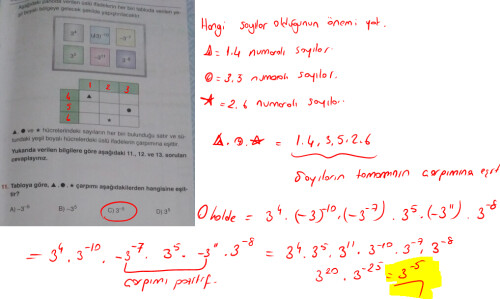 Aşağıdaki panoda verilen üslü ifadelerin her biri tabloda verilen ye-
şil boyalı bölgeye gelecek şekilde yapıştırılacaktır.
3⁴ (-3)⁻¹⁰ -3⁻⁷
3⁵ -3¹¹ 3⁻⁸
1 2 3
4 ▲
5 ●
6 ★
▲, ● ve ★ hücrelerindeki sayıların her biri bulunduğu satır ve sü-
tundaki yeşil boyalı hücrelerdeki üslü ifadelerin çarpımına eşittir.
Yukarıda verilen bilgilere göre aşağıdaki 11., 12. ve 13. soruları
cevaplayınız.
11. Tabloya göre, ▲ . ● . ★ çarpımı aşağıdakilerden hangisine eşit-
tir?
C) 3⁻⁵ D) 3⁵
Hangi sayılar olduğunun önemi yok.
△ = 1.4 numaralı sayılar
○ = 3.5 numaralı sayılar.
★ = 2.6 numaralı sayılar..
△ . ○ . ★ = 1.4.3.5.2.6
Sayıların tamamının çarpımına eşit
O halde = 3⁴ . (-3)⁻¹⁰ . (-3⁻⁷) . 3⁵ . (-3¹¹) . 3⁻⁸
= 3⁴ . 3⁻¹⁰ . -3⁻⁷ . 3⁵ . -3¹¹ . 3⁻⁸ = 3⁴ . 3⁵ . 3¹¹ . 3⁻¹⁰ . 3⁻⁷ . 3⁻⁸
çarpımı pozitif.
3²⁰ . 3⁻²⁵ = 3⁻⁵